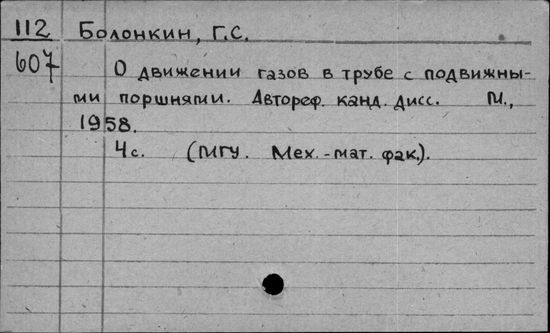 112 Болонкин, Г.С.
607 О движении газов в трубе с подвижны-
ми поршнями. Автореф. канд. дисс. М.,
1958.
4 с. (МГУ. Мех.-мат. фак.).